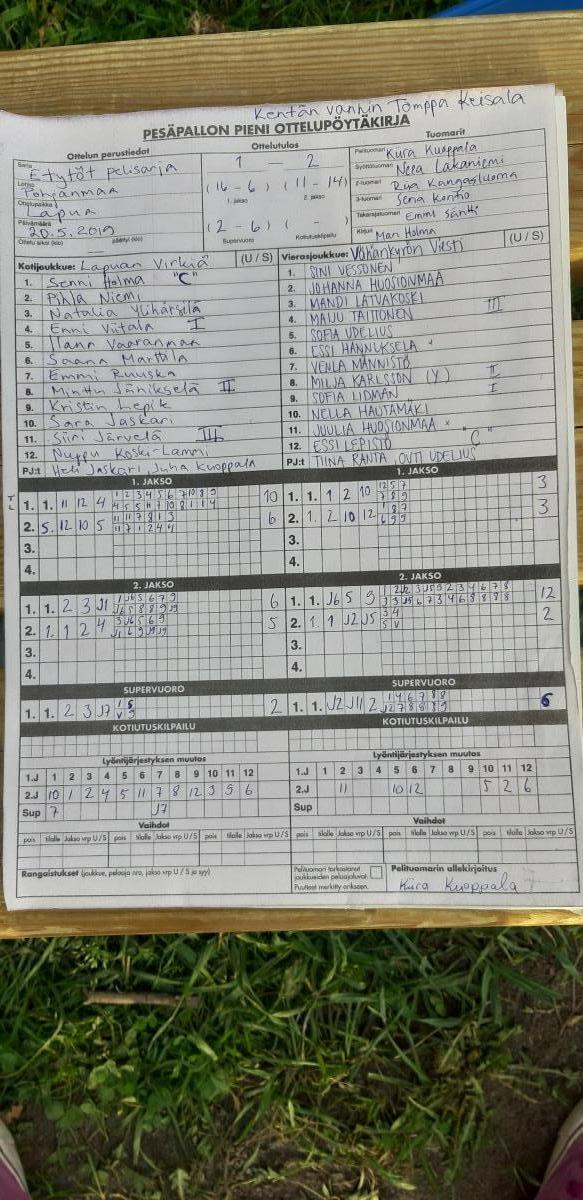 Kentän vanhin Tomppa Keisala
PESÄPALLON PIENI OTTELUPÖYTÄKIRJA
Ottelun perustiedot
Sarja Etytöt pelisarja
Lohko Pohjanmaa
Ottelupaikka Lapua
Päivämäärä 20.5.2019
Ottelu alkoi (klo) päättyi (klo)
Ottelutulos
1 2
(16 - 6) (11 - 14)
1. jakso 2. jakso
(2 - 6) ( - )
Supervuoro Kotiutuskilpailu
Tuomarit
Pelituomari Kiira Kuoppala
Syöttötuomari Neea Lakaniemi
2-tuomari Riia Kangasluoma
3-tuomari Sena Kontio
Takarajatuomari Emmi Säntti
Kirjuri Mari Holma
Kotijoukkue: Lapuan Virkiä (U / S)
1. Senni Holma "C"
2. Pihla Niemi
3. Natalia Ylihärsilä
4. Enni Viitala I
5. Ilann Vaaranmaa
6. Saana Marttala
7. Emmi Ruuska
8. Minttu Jänikselä II
9. Kristin Lepik
10. Sara Jaskari
11. Siiri Järvelä III
12. Nuppu Koski-Lammi
PJ:t Heli Jaskari, Juha Kuoppala
Vierasjoukkue: Vähänkyrön Viesti (U / S)
1. SINI VESSONEN
2. JOHANNA HUOSIONMAA
3. MANDI LATVAKOSKI III
4. MAIJU TAITTONEN
5. SOFIA UDELIUS
6. ESSI HANNUKSELA
7. VENLA MÄNNISTÖ
8. MILJA KARLSSON (Y) II
9. SOFIA LIDMAN I
10. NELLA HAUTAMÄKI
11. JUULIA HUOSIONMAA
12. ESSI LEPISTÖ "C"
PJ:t TIINA RANTA, OUTI UDELIUS
1. JAKSO
1. 1. 11 12 4 10
2. 5. 12 10 5 6
3.
4.
1. JAKSO
1. 1. 1 2 10 3
2. 1. 2 10 12 3
3.
4.
2. JAKSO
1. 1. 2 3 J1 6
2. 1. 1 2 4 5
3.
4.
2. JAKSO
1. 1. J6 5 9 12
2. 1 1 J2 J5 2
3.
4.
SUPERVUORO
1. 1. 2 3 J7 2
SUPERVUORO
1. 1. J2 J11 2 6
KOTIUTUSKILPAILU
KOTIUTUSKILPAILU
Lyöntijärjestyksen muutos
1.J 1 2 3 4 5 6 7 8 9 10 11 12
2.J 10 1 2 4 5 11 7 8 12 3 9 6
Sup 7 J7
Lyöntijärjestyksen muutos
1.J 1 2 3 4 5 6 7 8 9 10 11 12
2.J 11 10 12 5 2 6
Sup
Vaihdot
pois tilalle Jakso vrp U / S pois tilalle Jakso vrp U / S pois tilalle Jakso vrp U / S
Vaihdot
pois tilalle Jakso vrp U / S pois tilalle Jakso vrp U / S pois tilalle Jakso vrp U / S
Rangaistukset (joukkue, pelaaja nro, jakso vrp U / S ja syy)
Pelituomari tarkastanut joukkueiden pelaajaluvat.
Puutteet merkitty erikseen.
Pelituomarin allekirjoitus
Kiira Kuoppala